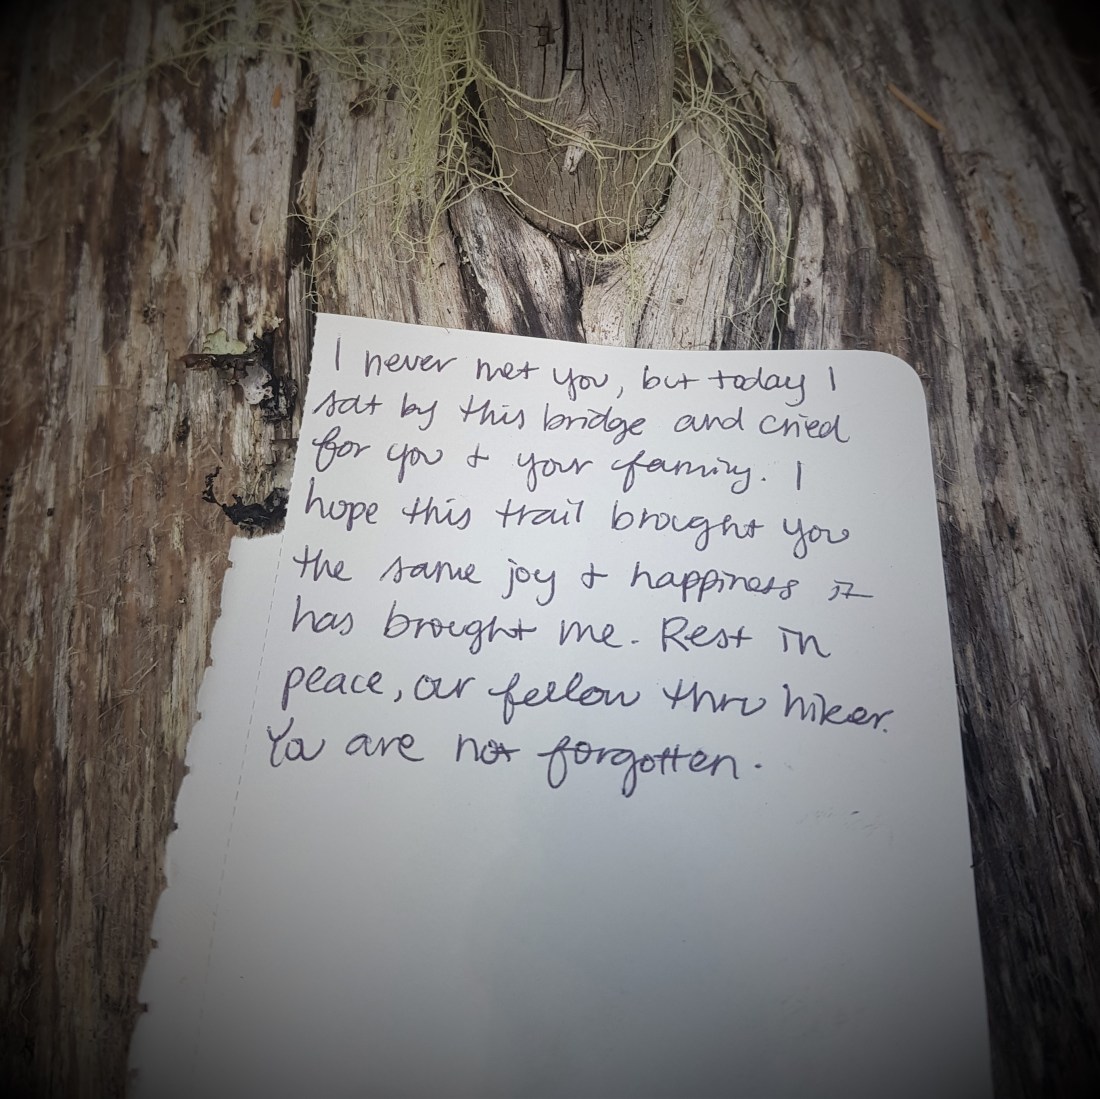 I never met you, but today I
sat by this bridge and cried
for you + your family. I
hope this trail brought you
the same joy + happiness it
has brought me. Rest in
peace, our fellow thru hiker.
You are not forgotten.